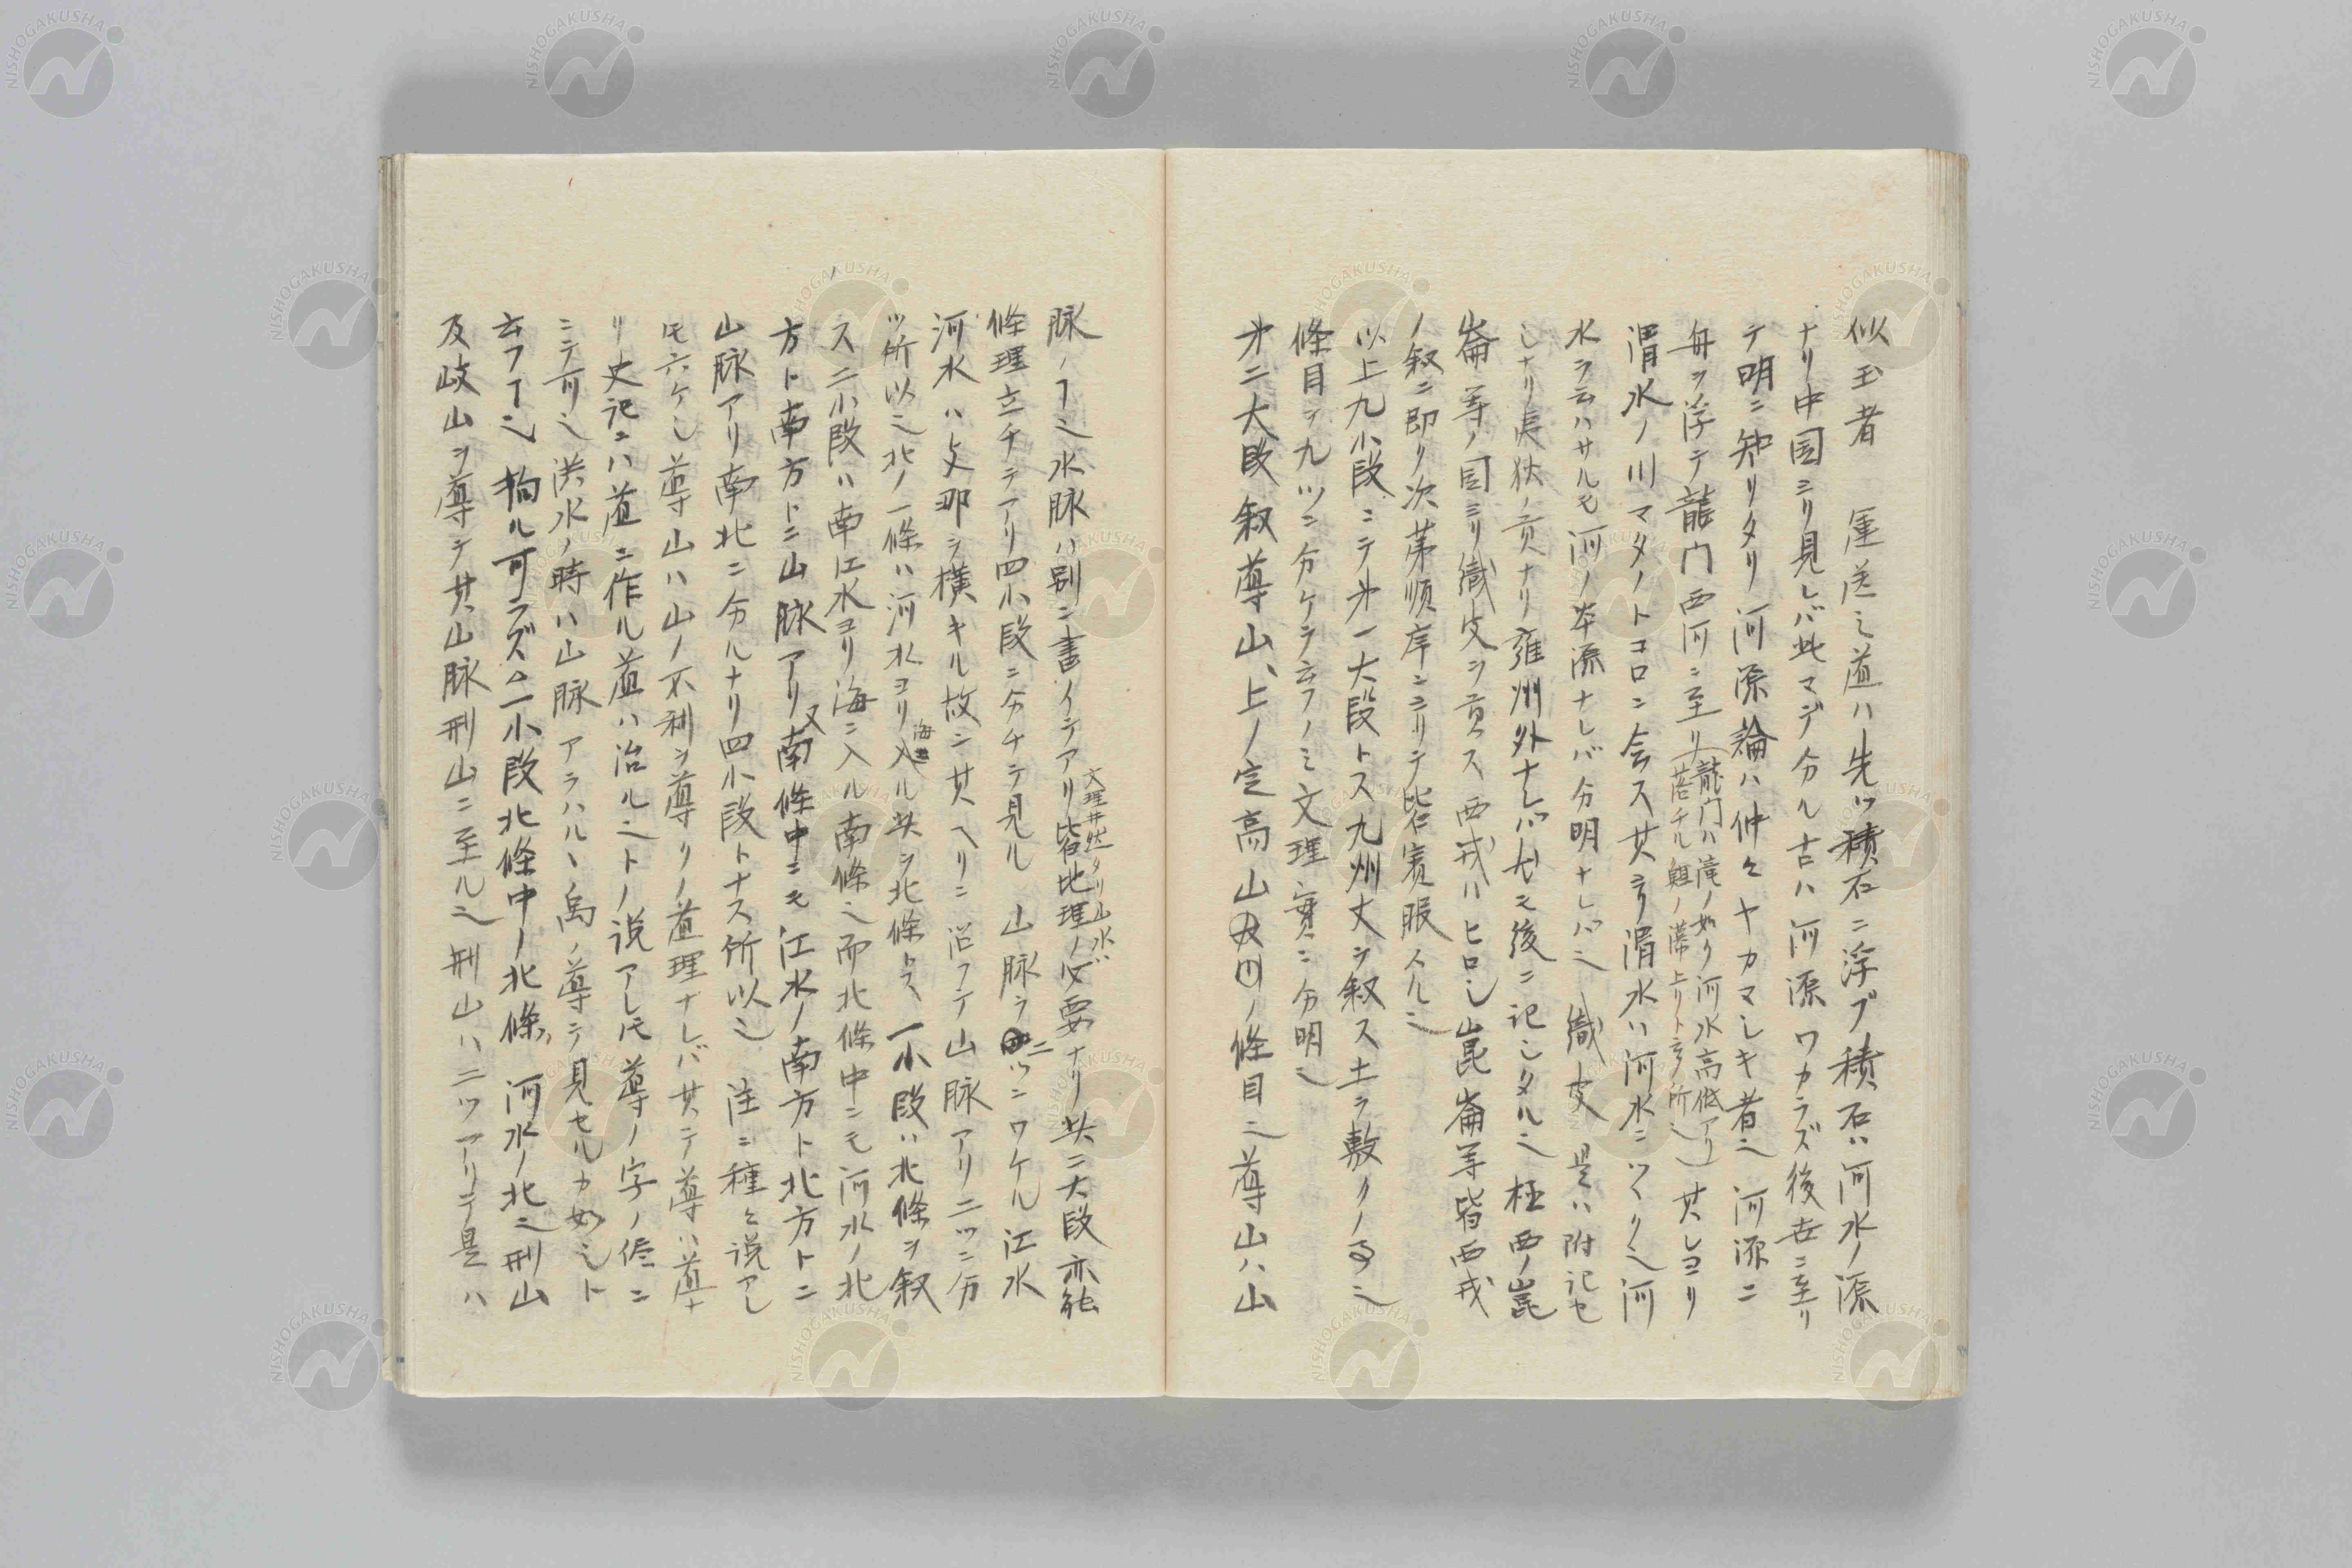 似玉者 運送之道ハ先ツ積石ニ浮ブ積石ハ河水ノ源
ナリ中国ヨリ見レバ此マデ分ル古ハ河源ワカラズ後世ニ至リ
テ明ニ知リタリ河源論ハ仲々ヤカマシキ者也河源ニ
舟ヲ浮テ龍门西河ニ至リ(龍门ハ滝ノ如ク河水高低アリ
落チル鯉ノ瀑上リト云所也)其レヨリ
渭水ノ川マタノトコロニ会ス其ヨリ渭水ハ河水ニツク也河
水ヲ云ハサルモ河ノ本源ナレバ分明ナレバ也 織皮 是ハ附記セ
シナリ戻狄ノ貢ナリ雍州外ナレバ尤モ後ニ記シタル也極西ノ崑
崙等ノ国ヨリ織皮ヲ貢ス西戎ハヒロシ崐崙等皆西戎
ノ叙ニ即リ次第順序ニヨリテ皆賓服スル也
以上九小段ニテ㐧一大段トス九州丈ヲ叙ス土ヲ敷クノヿ也
條目ヲ九ツニ分ケテ云フノミ文理実ニ分明也
㐧二大段叙導山、上ノ定高山大川ノ條目也導山ハ山
脉ノヿ也水脉ハ別ニ書イテアリ皆地理ノ必要ナリ此二大段亦能
文理井然タリ山水ハ
條理立チテアリ四小段ニ分チテ見ル 山脉ヲ二ツニワケル江水
河水ハ支那ヲ横キル故ニ其ヘリニ沿フテ山脉アリ二ツニ分
ツ所以也北ノ一條ハ河水ヨリ海ニ入ル此ヲ北條トス 一小段ハ北條ヲ叙
ス二小段ハ南江水ヨリ海ニ入ル南條也而北條中ニモ河水ノ北
方ト南方トニ山脉アリ又南條中ニモ江水ノ南方ト北方トニ
山脉アリ南北ニ分ルナリ四小段トナス所以也 注ニ種々説アレ
𪜈六ケシ導山ハ山ノ不利ヲ導クノ道理ナレバ其テ導ハ導ナ
リ史記ニハ道ニ作ル道ハ治ル也トノ説アレ𪜈導ノ字ノ侭ニ
ニテ可也洪水ノ時ハ山脉アラハルヽ禹ノ導テ見セルカ如シト
云フヿ也 拘ル可ラズ△一小段北條中ノ北條、河水ノ北也刑山
及岐山ヲ導テ其山脉刑山ニ至ル也刑山ハ二ツアリテ是ハ